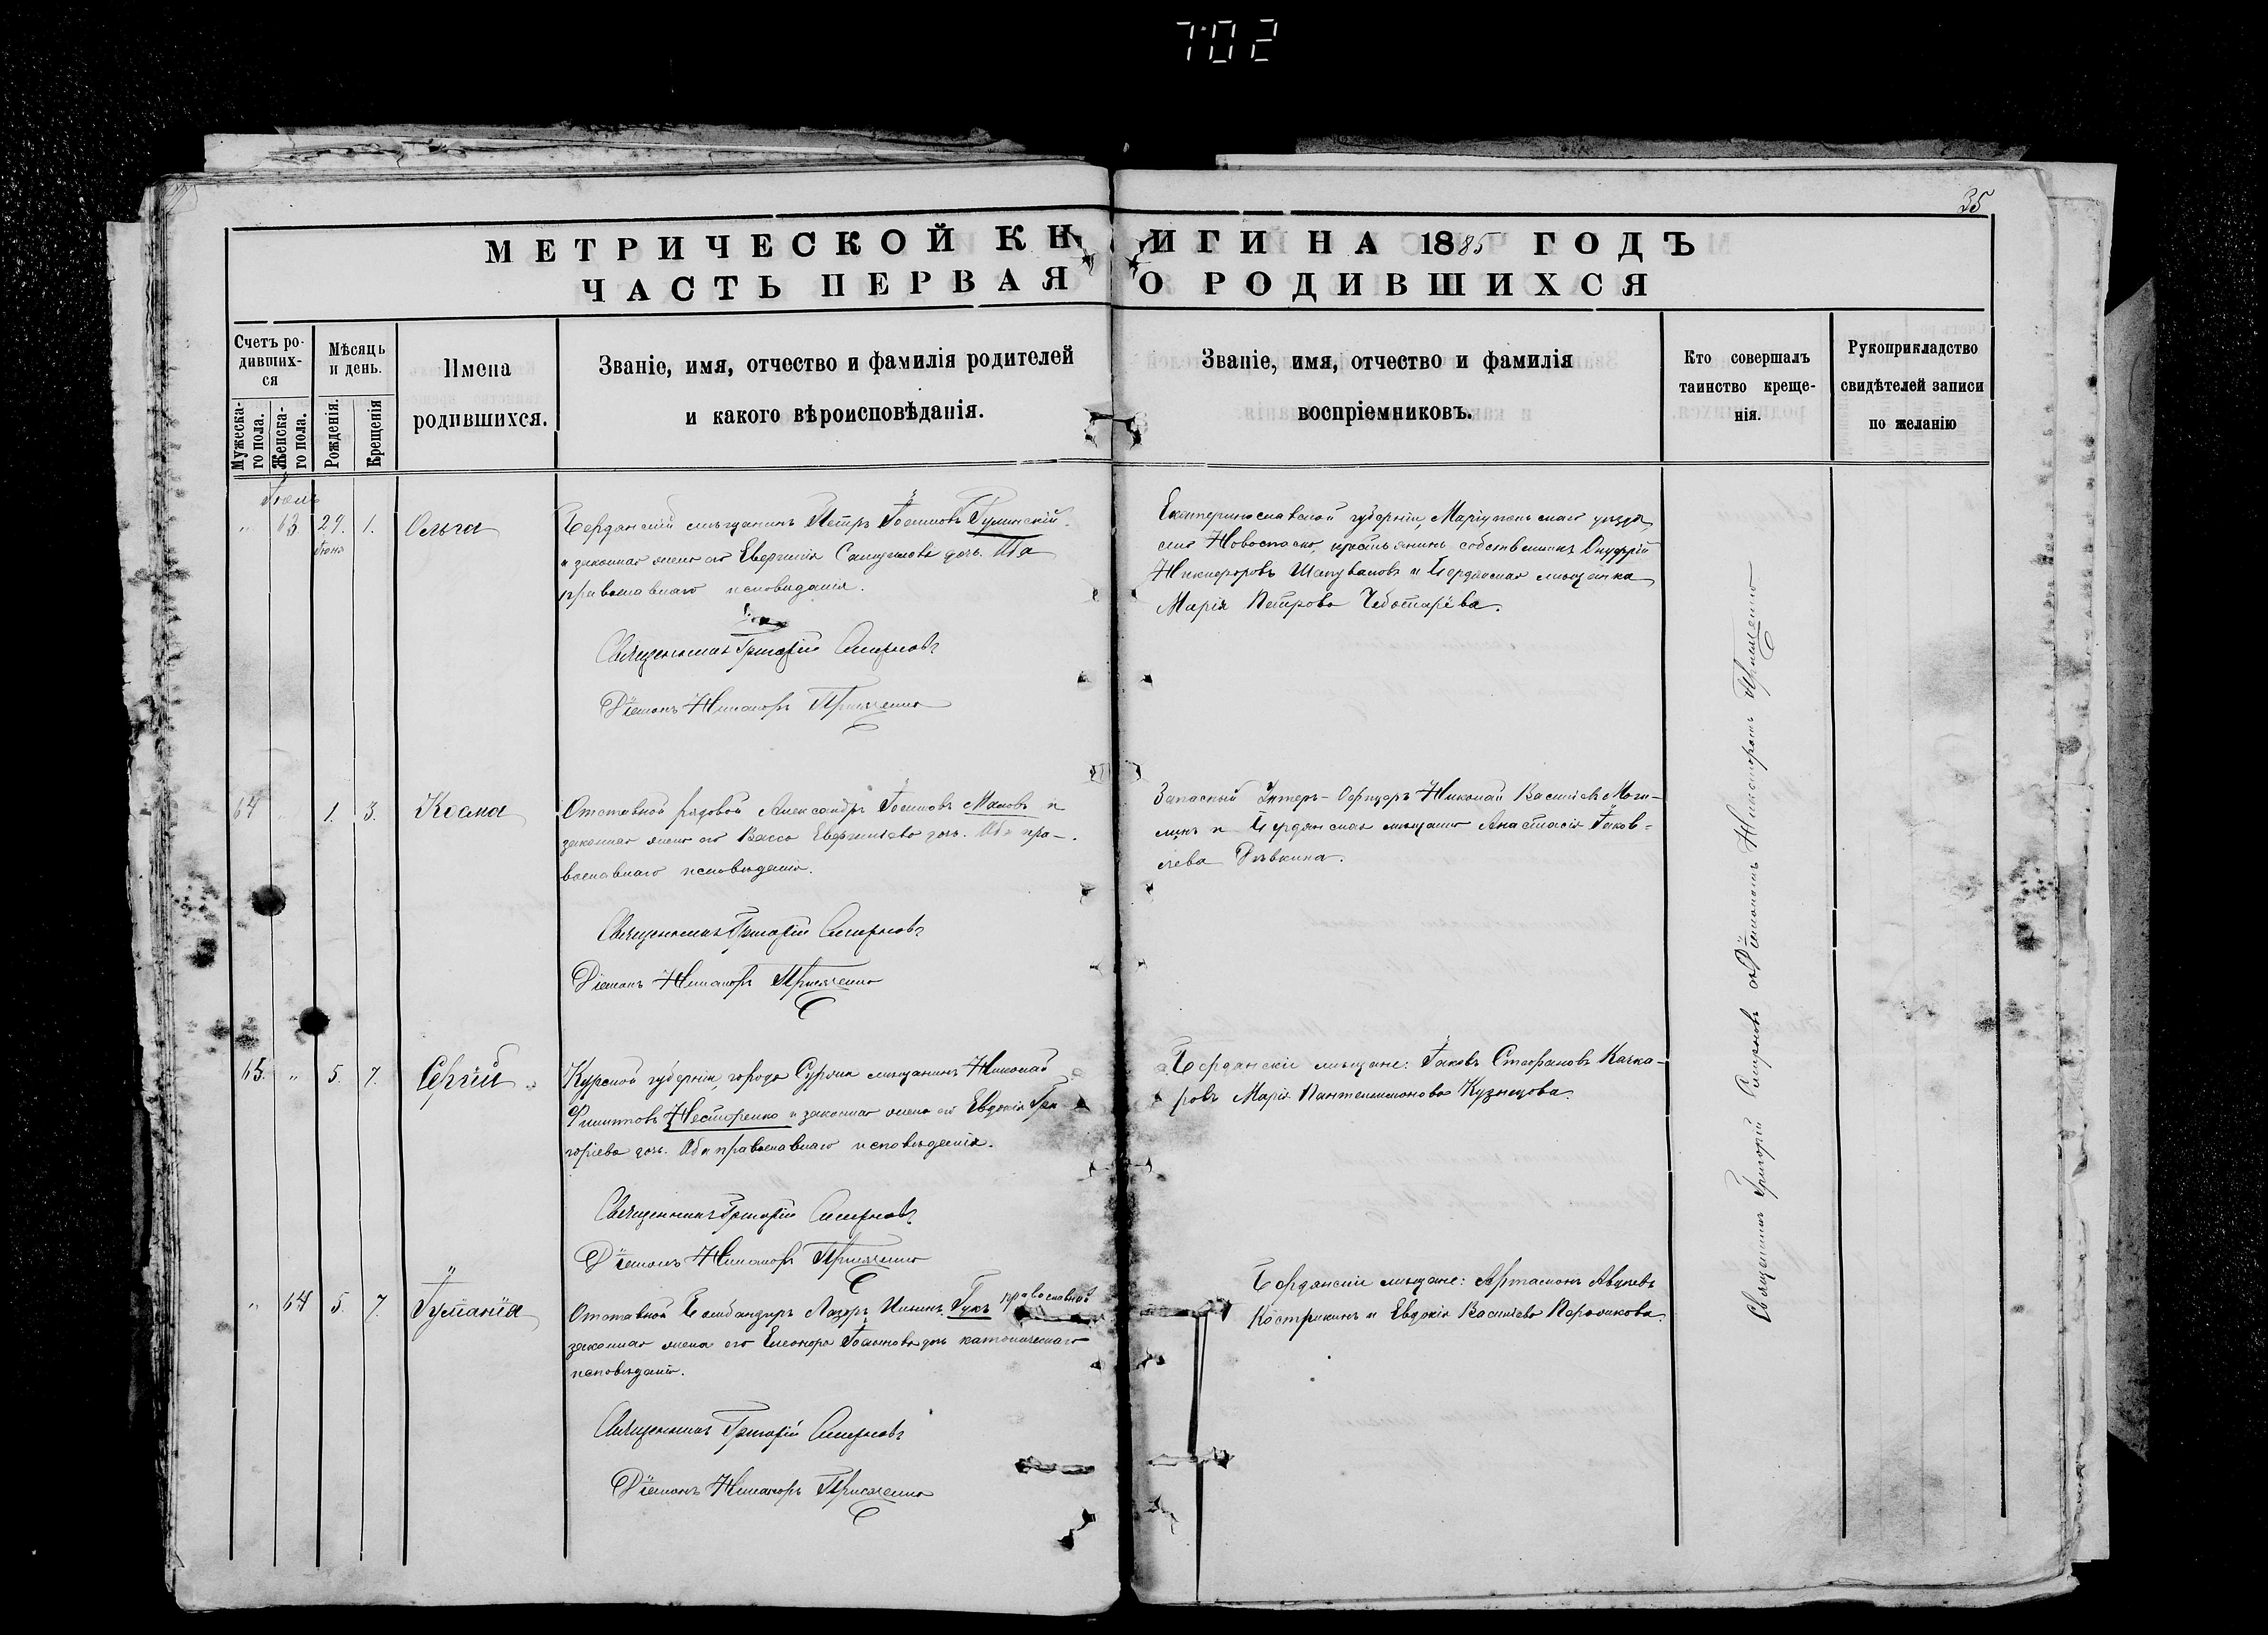 702
35
МЕТРИЧЕСКОЙ КНИГИ НА 1885 ГОДЪ
ЧАСТЬ ПЕРВАЯ О РОДИВШИХСЯ
Счетъ ро-
дивших-
ся
Мужеска-
го пола.
Женска-
го пола.
Мѣсяць
и день.
Рожденія.
Крещенія
Имена
родившихся.
Званіе, имя, отчество и фамилія родителей
и какого вѣроисповѣданія.
Званіе, имя, отчество и фамилія
воспріемниковъ.
Кто совершалъ
таинство креще-
нія.
Рукоприкладство
свидѣтелей записи
по желанію
Іюль
„ 63 29. 1. Ольга
Бердянскій мѣщанинъ Петръ Іоанновъ
и законная жена его Евгенія дочь. Оба
православнаго исповѣданія.
Священникъ Григорій Смирновъ
Діаконъ Никаноръ
Екатеринославской губерніи, Маріупольскаго уѣзда
села Новоспаско, крестьянинъ собственникъ Онуфрій
Никифоровъ Шаповаловъ и Бердянская мѣщанка
Марія Петрова Чеботарёва.
64 „ 1. 3. Косма
Отставной рядовой Александръ Іоанновъ Маловъ и
законная жена его Васса дочь. Оба пра-
вославнаго исповѣданія.
Священникъ Григорій Смирновъ
Діаконъ Никаноръ
Запасный Унтеръ-Офицеръ Николай Васильевъ Моги-
линъ и Бердянская мѣщанка Анастасія Іаков-
лева
65. „ 5. 7. Сергій
Курской губерніи, города мѣщанинъ Николай
Филипповъ Нестеренко и законная жена его Евдокія Гри-
горіева дочь. Оба православнаго исповѣданія.
Священникъ Григорій Смирновъ
Діаконъ Никаноръ
Бердянскіе мѣщане: Іаковъ Стефановъ Качка-
ровъ Марія Пантелеимонова Кузнецова.
„ 64 5. 7. Іуліанія
Отставной Лазарь Гукъ православный
законная жена его Елеонора Іоаннова дочь католическаго
исповѣданія.
Священникъ Григорій Смирновъ
Діаконъ Никаноръ
Бердянскіе мѣщане: Артамонъ
Кострикинъ и Евдокія Васильева
Священникъ Григорій Смирновъ съ Діакономъ Никаноромъ